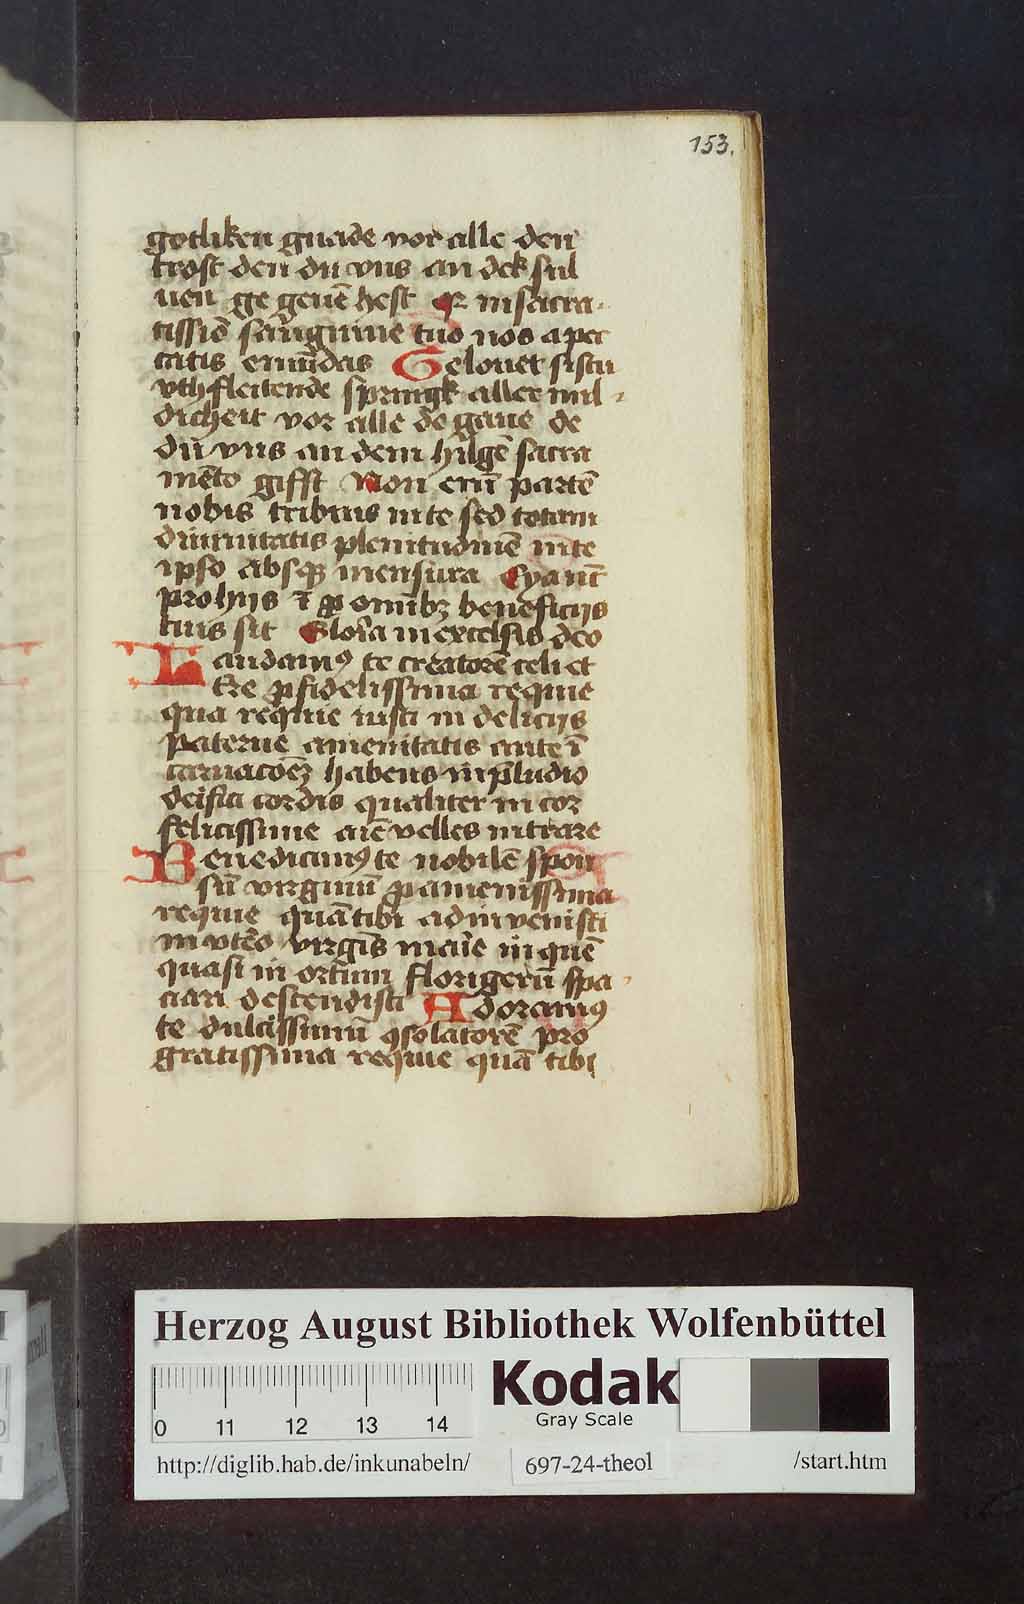 153.
gotliken gnade vor alle den
trost den du vns an dek sul
uen ge geuē hest Et in sacra-
tissīo sāguine tuo nos a pec
catis emūdas Gelouet sistu
vthfleitende springk aller mil-
dicheit vor alle de gaue de
du vns an dem hilgē sacra
mēto gifft Non enī partē
nobis tribuis in te sed totam
diuinitatis plenitudinē in te
ipso absqꝫ mensura Eya nūc
pro hijs ī ꝓ omībꝫ beneficijs
tuis sit Glōria in excelsis deo
Laudamꝰ te creatorē celi et
tr̄e ꝓ fidelissima requie
qua requie iusti in delicijs
paterne amenitatis ante ī
carnacōeꝫ habens in p̄ludio
deifici cordis qualiter in cor
felicissime arē velles intrare
Benedicimꝰ te nobilē spon
sū virginū ꝓ amenissima
requie quā tibi adinvenisti
in vtēo virgīs marie in quē
quasi in ortum florigerū spa-
ciari descendisti Adoramꝰ
te dulcissimū ꝯsolatorē pro
gratissima requie quā tibi
Herzog August Bibliothek Wolfenbüttel
Kodak
Gray Scale
0 11 12 13 14
http://diglib.hab.de/inkunabeln/ 697-24-theol /start.htm